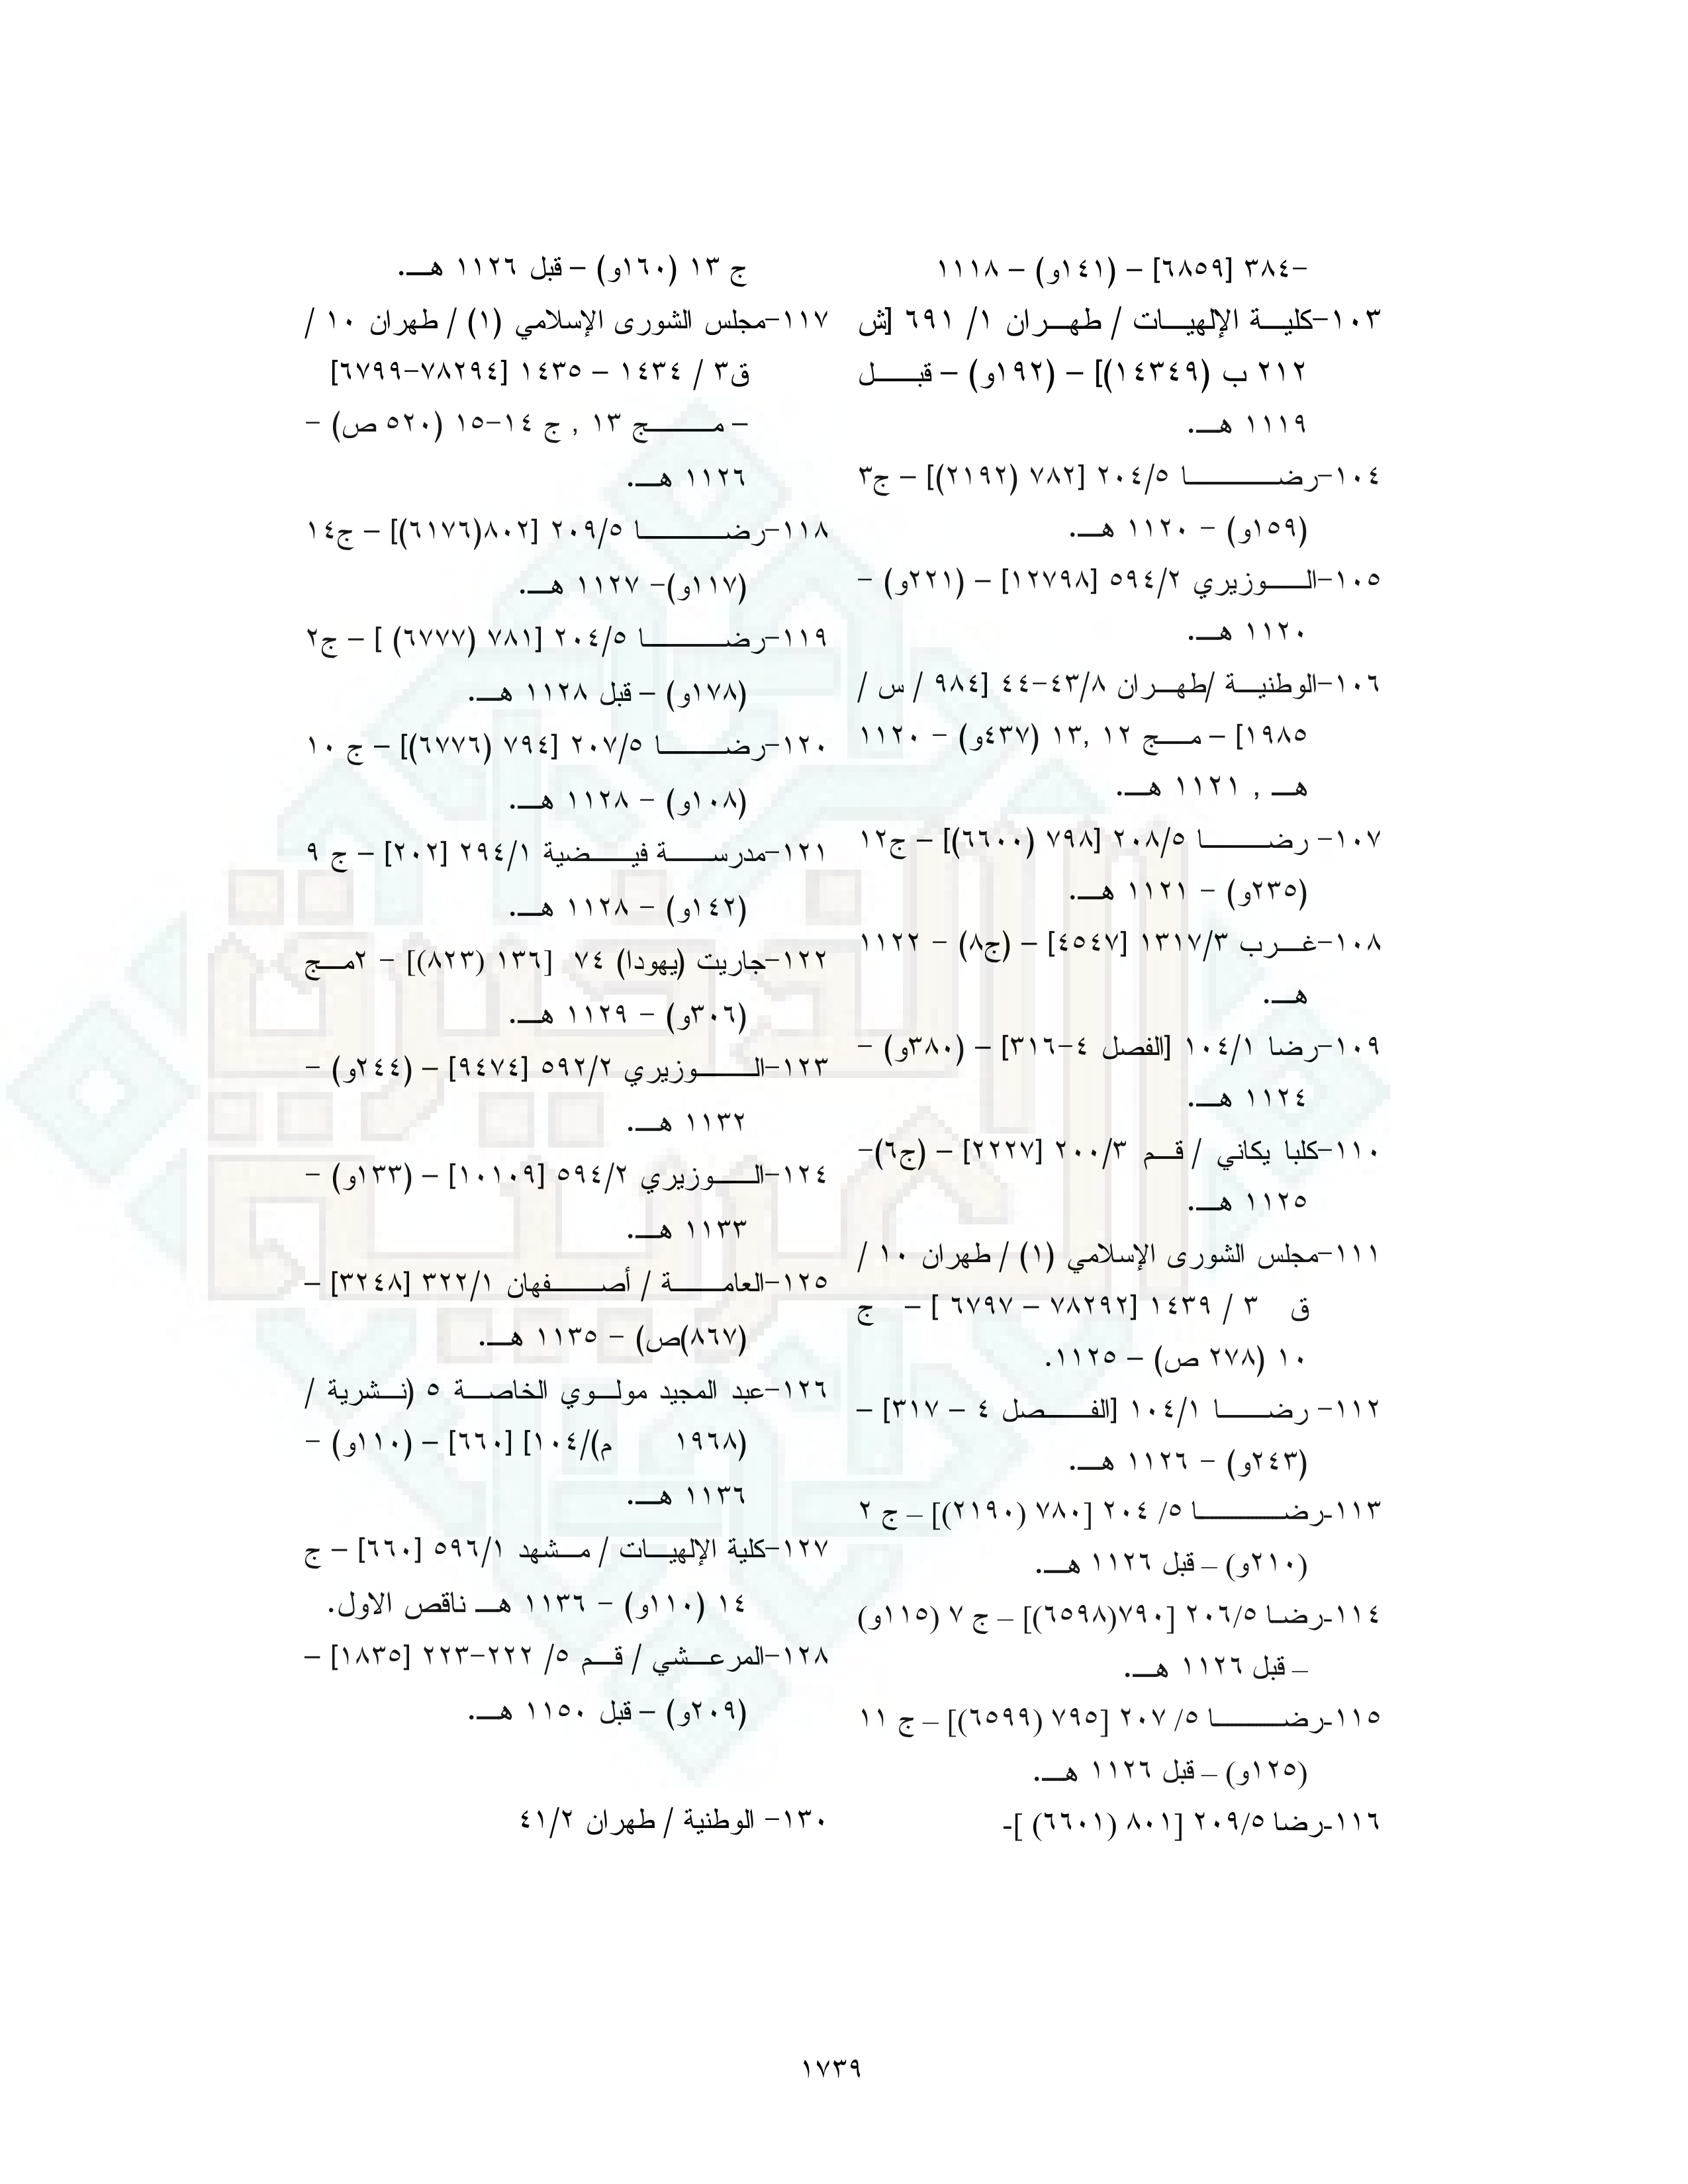 -٣٨٤ [٦٨٥٩] – (١٤١و) – ١١١٨
١٠٣-كلية الإلهيات / طهران ١/ ٦٩١ [ش
٢١٢ ب (١٤٣٤٩)] – (١٩٢و) – قبل
١١١٩ هـ.
١٠٤-رضا ٢٠٤/٥ [٧٨٢ (٢١٩٢)] – ج٣
(١٥٩و) – ١١٢٠ هـ.
١٠٥-الوزيري ٥٩٤/٢ [١٢٧٩٨] – (٢٢١و) –
١١٢٠ هـ.
١٠٦-الوطنية /طهران ٤٣/٨-٤٤ [٩٨٤ / س /
١٩٨٥] – مج ١٢ ,١٣ (٤٣٧و) – ١١٢٠
هـ , ١١٢١ هـ.
١٠٧- رضا ٢٠٨/٥ [٧٩٨ (٦٦٠٠)] – ج١٢
(٢٣٥و) – ١١٢١ هـ.
١٠٨-غرب ١٣١٧/٣ [٤٥٤٧] – (ج٨) – ١١٢٢
هـ.
١٠٩-رضا ١٠٤/١ [الفصل ٤-٣١٦] – (٣٨٠و) –
١١٢٤ هـ.
١١٠-كلبا يكاني / قم ٢٠٠/٣ [٢٢٢٧] – (ج٦)-
١١٢٥ هـ.
١١١-مجلس الشورى الإسلامي (١) / طهران ١٠ /
ق ٣ / ١٤٣٩ [٧٨٢٩٢ – ٦٧٩٧ ] – ج
١٠ (٢٧٨ ص) – ١١٢٥.
١١٢- رضا ١٠٤/١ [الفصل ٤ – ٣١٧] –
(٢٤٣و) – ١١٢٦ هـ.
١١٣-رضا ٥/ ٢٠٤ [٧٨٠ (٢١٩٠)] – ج ٢
(٢١٠و) – قبل ١١٢٦ هـ.
١١٤-رضا ٢٠٦/٥ [٧٩٠(٦٥٩٨)] – ج ٧ (١١٥و)
– قبل ١١٢٦ هـ.
١١٥-رضا ٥/ ٢٠٧ [٧٩٥ (٦٥٩٩)] – ج ١١
(١٢٥و) – قبل ١١٢٦ هـ.
١١٦-رضا ٢٠٩/٥ [٨٠١ (٦٦٠١) ]-
ج ١٣ (١٦٠و) – قبل ١١٢٦ هـ.
١١٧-مجلس الشورى الإسلامي (١) / طهران ١٠ /
ق٣ / ١٤٣٤ – ١٤٣٥ [٧٨٢٩٤-٦٧٩٩]
– مج ١٣ , ج ١٤-١٥ (٥٢٠ ص) –
١١٢٦ هـ.
١١٨-رضا ٢٠٩/٥ [٨٠٢(٦١٧٦)] – ج١٤
(١١٧و)- ١١٢٧ هـ.
١١٩-رضا ٢٠٤/٥ [٧٨١ (٦٧٧٧) ] – ج٢
(١٧٨و) – قبل ١١٢٨ هـ.
١٢٠-رضا ٢٠٧/٥ [٧٩٤ (٦٧٧٦)] – ج ١٠
(١٠٨و) – ١١٢٨ هـ.
١٢١-مدرسة فيضية ٢٩٤/١ [٢٠٢] – ج ٩
(١٤٢و) – ١١٢٨ هـ.
١٢٢-جاريت (يهودا) ٧٤ [١٣٦ (٨٢٣)] – ٢مج
(٣٠٦و) – ١١٢٩ هـ.
١٢٣-الوزيري ٥٩٢/٢ [٩٤٧٤] – (٢٤٤و) –
١١٣٢ هـ.
١٢٤-الوزيري ٥٩٤/٢ [١٠١٠٩] – (١٣٣و) –
١١٣٣ هـ.
١٢٥-العامة / أصفهان ٣٢٢/١ [٣٢٤٨] –
(٨٦٧)ص) – ١١٣٥ هـ.
١٢٦-عبد المجيد مولوي الخاصة ٥ (نشرية /
(١٩٦٨ م)/١٠٤] [٦٦٠] – (١١٠و) –
١١٣٦ هـ.
١٢٧-كلية الإلهيات / مشهد ٥٩٦/١ [٦٦٠] – ج
١٤ (١١٠و) – ١١٣٦ هـ ناقص الاول.
١٢٨-المرعشي / قم ٥/ ٢٢٢-٢٢٣ [١٨٣٥] –
(٢٠٩و) – قبل ١١٥٠ هـ.
١٣٠- الوطنية / طهران ٤١/٢
١٧٣٩